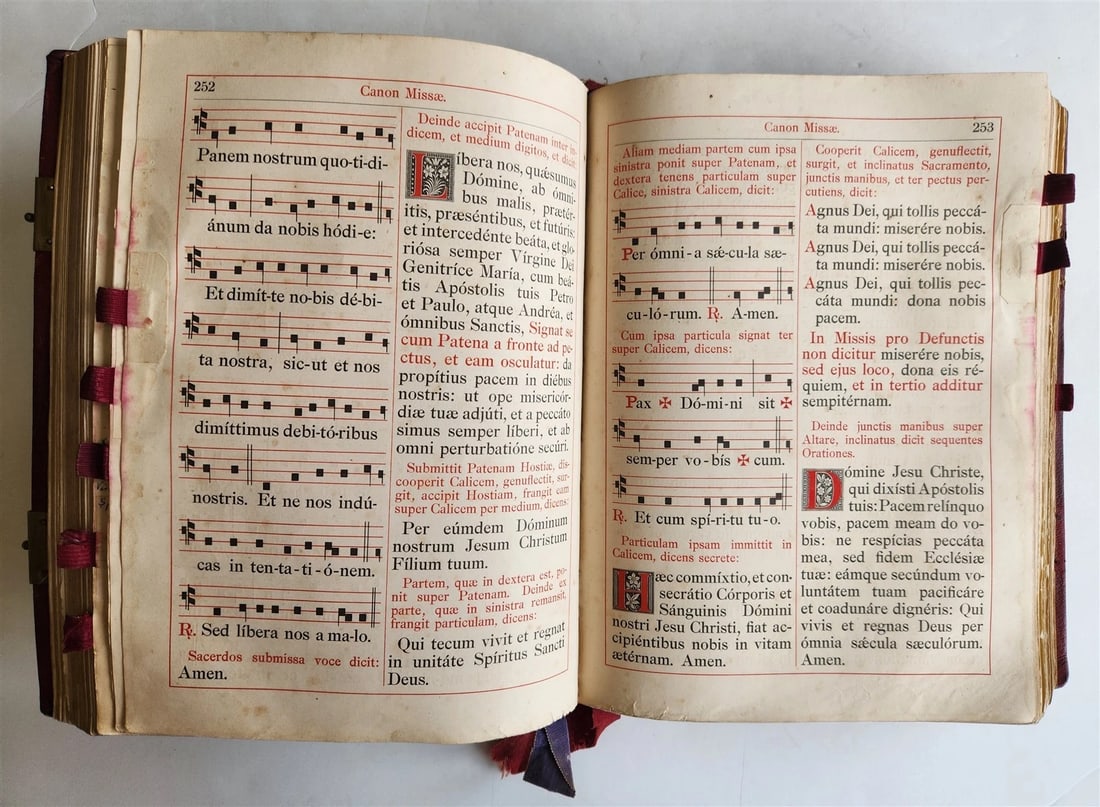 252
Canon Missæ.
Panem nostrum quo-ti-di-
ánum da nobis hódi-e:
Et dimít-te no-bis dé-bi-
ta nostra, sic-ut et nos
dimíttimus debi-tó-ribus
nostris. Et ne nos indú-
cas in ten-ta-ti-ó-nem.
℟. Sed líbera nos a ma-lo.
Sacerdos submissa voce dicit:
Amen.
Deinde accipit Patenam inter in-
dicem, et medium digitos, et dicit:
Líbera nos, quǽsumus
Dómine, ab ómni-
bus malis, prætér-
itis, præséntibus, et futúris:
et intercedénte beáta, et glo-
riósa semper Vírgine Dei
Genitríce María, cum beá-
tis Apóstolis tuis Petro
et Paulo, atque Andréa, et
ómnibus Sanctis, Signat se
cum Patena a fronte ad pe-
ctus, et eam osculatur: da
propítius pacem in diébus
nostris: ut ope misericór-
diæ tuæ adjúti, et a peccáto
simus semper líberi, et ab
omni perturbatióne secúri.
Submittit Patenam Hostiæ, dis-
cooperit Calicem, genuflectit, sur-
git, accipit Hostiam, frangit eam
super Calicem per medium, dicens:
Per eúmdem Dóminum
nostrum Jesum Christum
Fílium tuum.
Partem, quæ in dextera est, po-
nit super Patenam. Deinde ex
parte, quæ in sinistra remansit,
frangit particulam, dicens:
Qui tecum vivit et regnat
in unitáte Spíritus Sancti
Deus.
Canon Missæ.
253
Aliam mediam partem cum ipsa
sinistra ponit super Patenam, et
dextera tenens particulam super
Calice, sinistra Calicem, dicit:
Per ómni-a sǽ-cu-la sæ-
cu-ló-rum. ℟. A-men.
Cum ipsa particula signat ter
super Calicem, dicens:
Pax ✠ Dó-mi-ni sit ✠
sem-per vo-bís ✠ cum.
℟. Et cum spí-ri-tu tu-o.
Particulam ipsam immittit in
Calicem, dicens secrete:
Hæc commíxtio, et con-
secrátio Córporis et
Sánguinis Dómini
nostri Jesu Christi, fiat ac-
cipiéntibus nobis in vitam
ætérnam. Amen.
Cooperit Calicem, genuflectit,
surgit, et inclinatus Sacramento,
junctis manibus, et ter pectus per-
cutiens, dicit:
Agnus Dei, qui tollis peccá-
ta mundi: miserére nobis.
Agnus Dei, qui tollis peccá-
ta mundi: miserére nobis.
Agnus Dei, qui tollis pec-
cáta mundi: dona nobis
pacem.
In Missis pro Defunctis
non dicitur miserére nobis,
sed ejus loco, dona eis ré-
quiem, et in tertio additur
sempitérnam.
Deinde junctis manibus super
Altare, inclinatus dicit sequentes
Orationes.
Dómine Jesu Christe,
qui dixísti Apóstolis
tuis: Pacem relínquo
vobis, pacem meam do vo-
bis: ne respícias peccáta
mea, sed fidem Ecclésiæ
tuæ: eámque secúndum vo-
luntátem tuam pacificáre
et coadunáre dignéris: Qui
vivis et regnas Deus per
ómnia sǽcula sæculórum.
Amen.